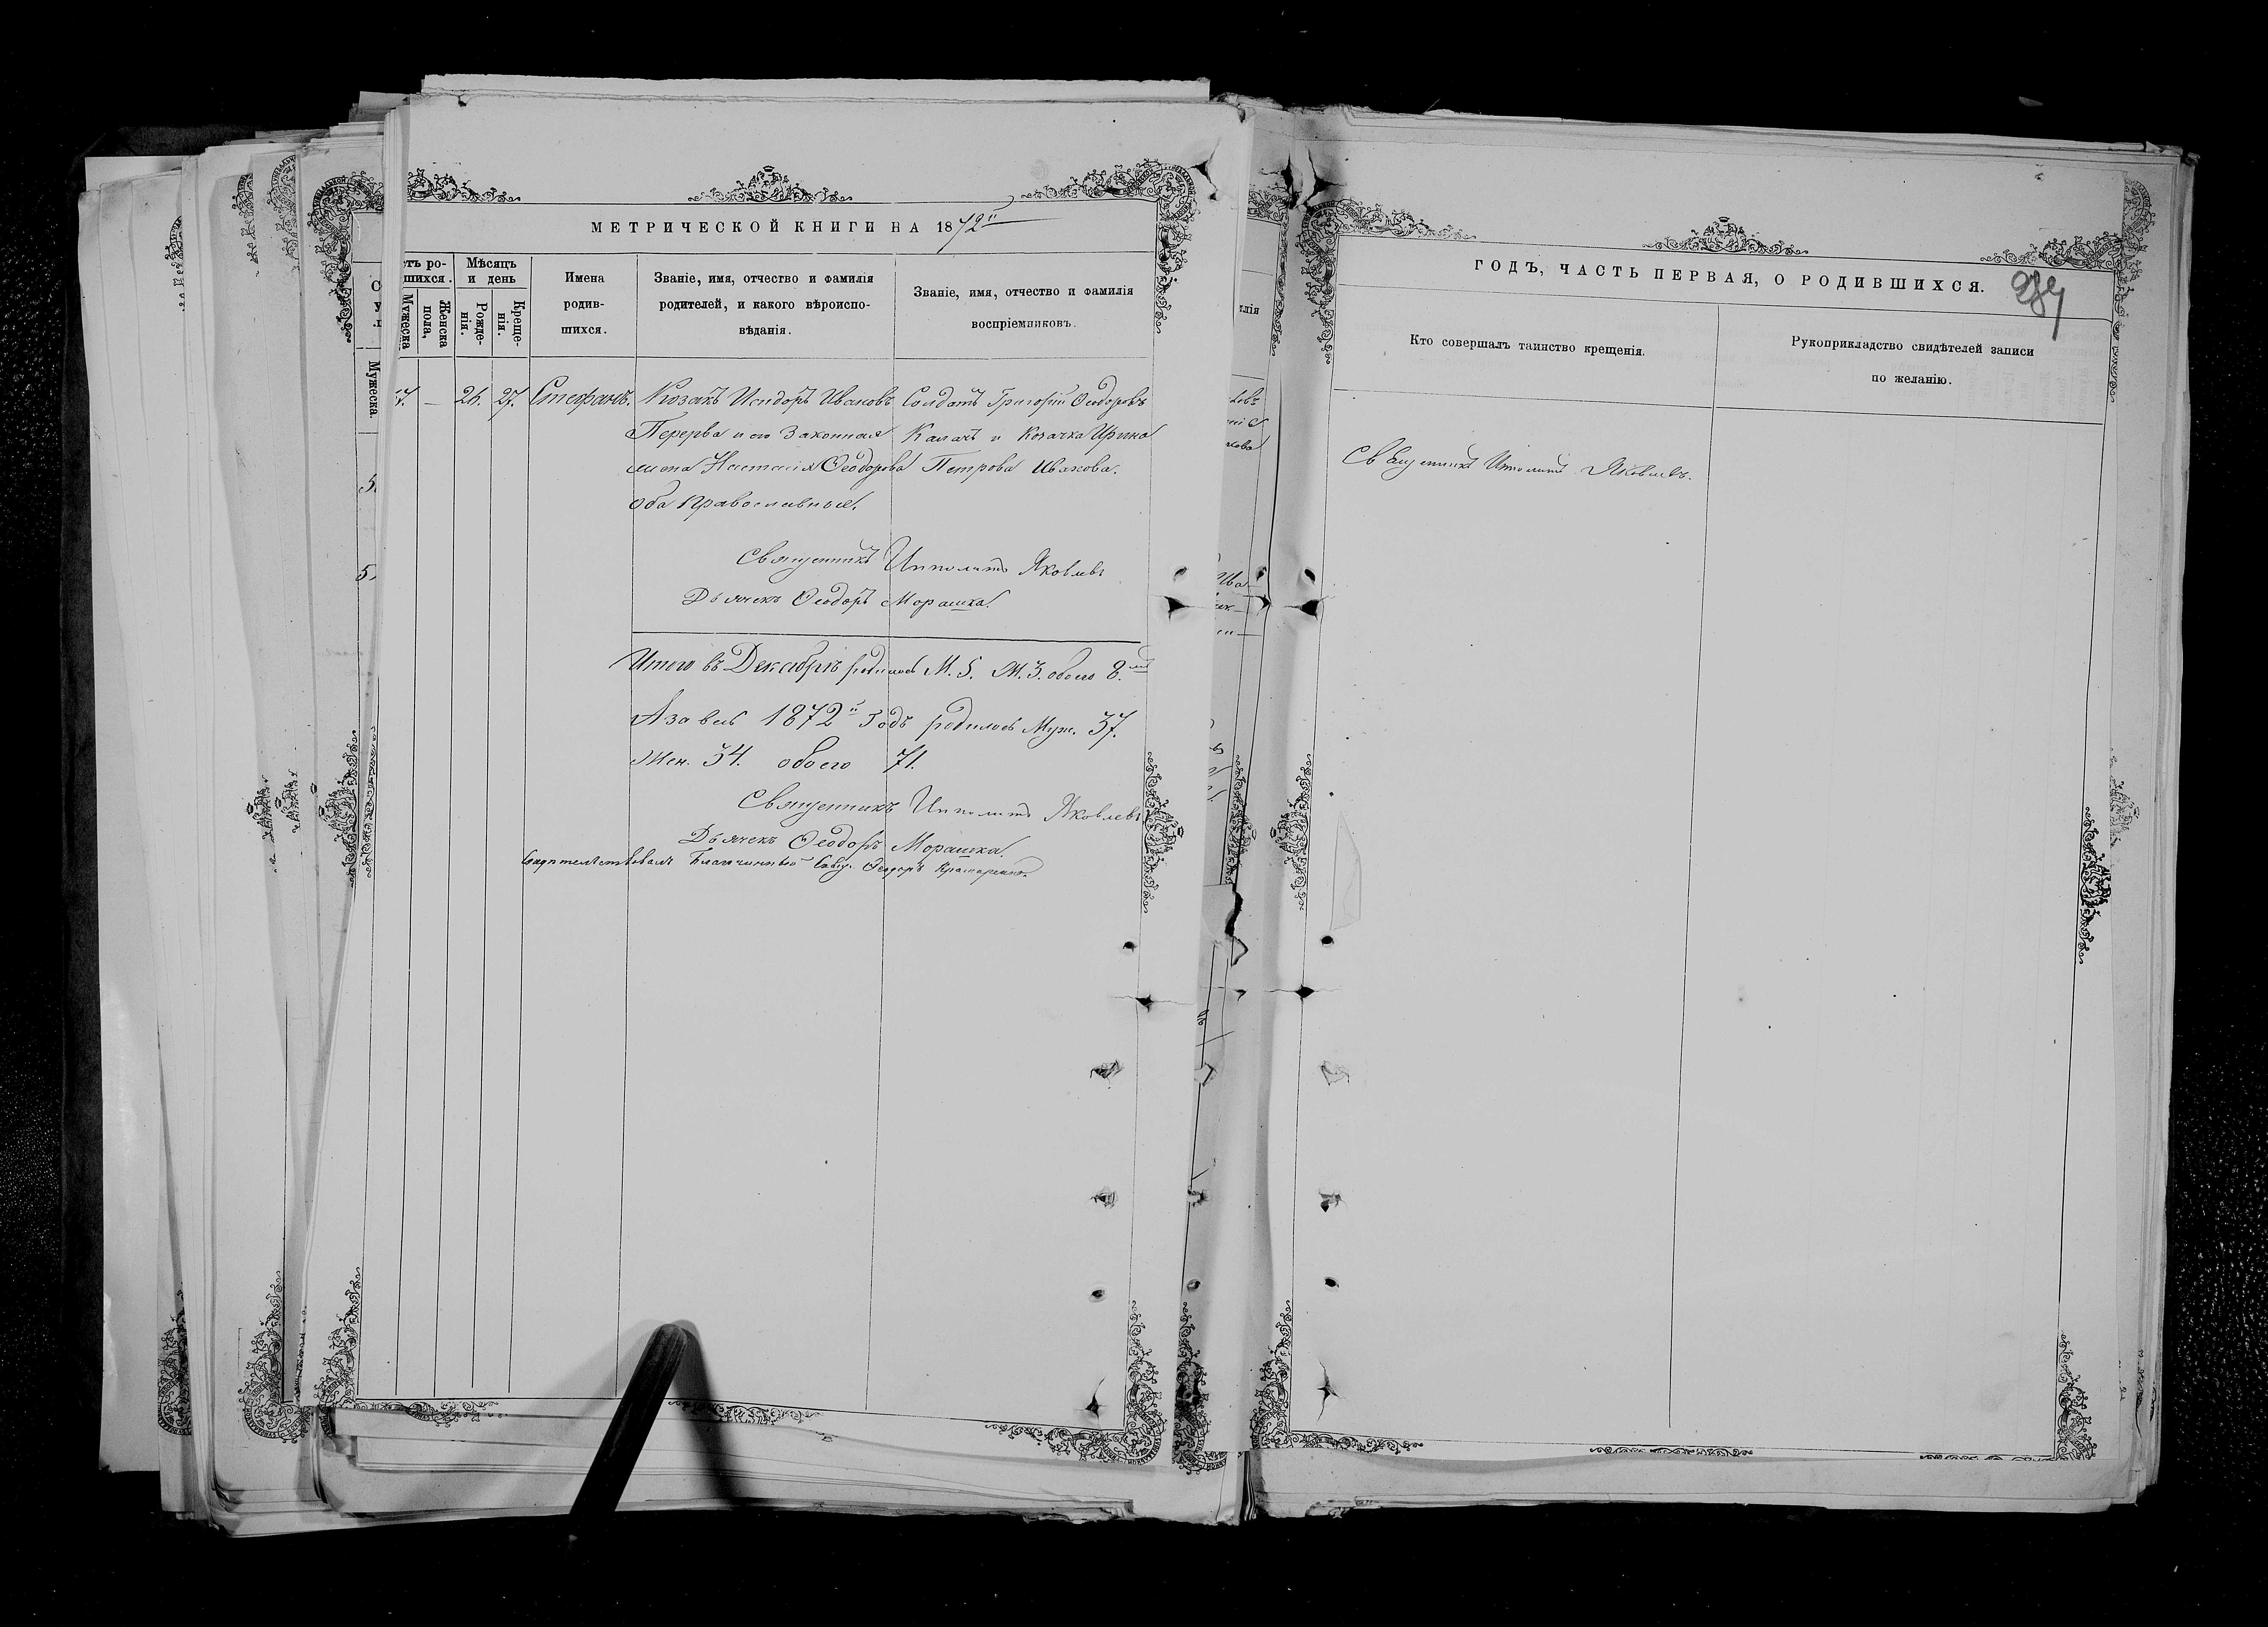 МЕТРИЧЕСКОЙ КНИГИ НА 1872й
сть ро-
шихся.
Мужеска
пола,
Женска
Мѣсяцъ
и день
Рожде-
нія.
Креще-
нія.
Имена
родив-
шихся.
Званіе, имя, отчество и фамилія
родителей, и какого вѣроиспо-
вѣданія.
Званіе, имя, отчество и фамилія
воспріемниковъ.
7. — 26. 27. Стефанъ.
Козакъ Исидоръ Ивановъ
Перерва и его Законная
жена Настасія Ѳеодорова
оба православные.
Солдатъ Григорій Ѳеодоровъ
Калачъ и Козачка Ирина
Петрова Ивахова.
Священникъ Ипполитъ Яковлевъ
Дьячекъ Ѳеодоръ Морашка.
Итого въ Декабрѣ родилось М. 5. Ж. 3. обоего 8.
А за весь 1872й Годъ родилось Муж. 37.
Жен. 34. обоего 71.
Священникъ Ипполитъ Яковлевъ
Дьячекъ Ѳеодоръ Морашка.
Свидѣтельствовалъ Благочинный Свящ. Ѳеодоръ
Мужеска.
ГОДЪ, ЧАСТЬ ПЕРВАЯ, О РОДИВШИХСЯ.
Кто совершалъ таинство крещенія.
Рукоприкладство свидѣтелей записи
по желанію.
Священникъ Ипполитъ Яковлевъ.